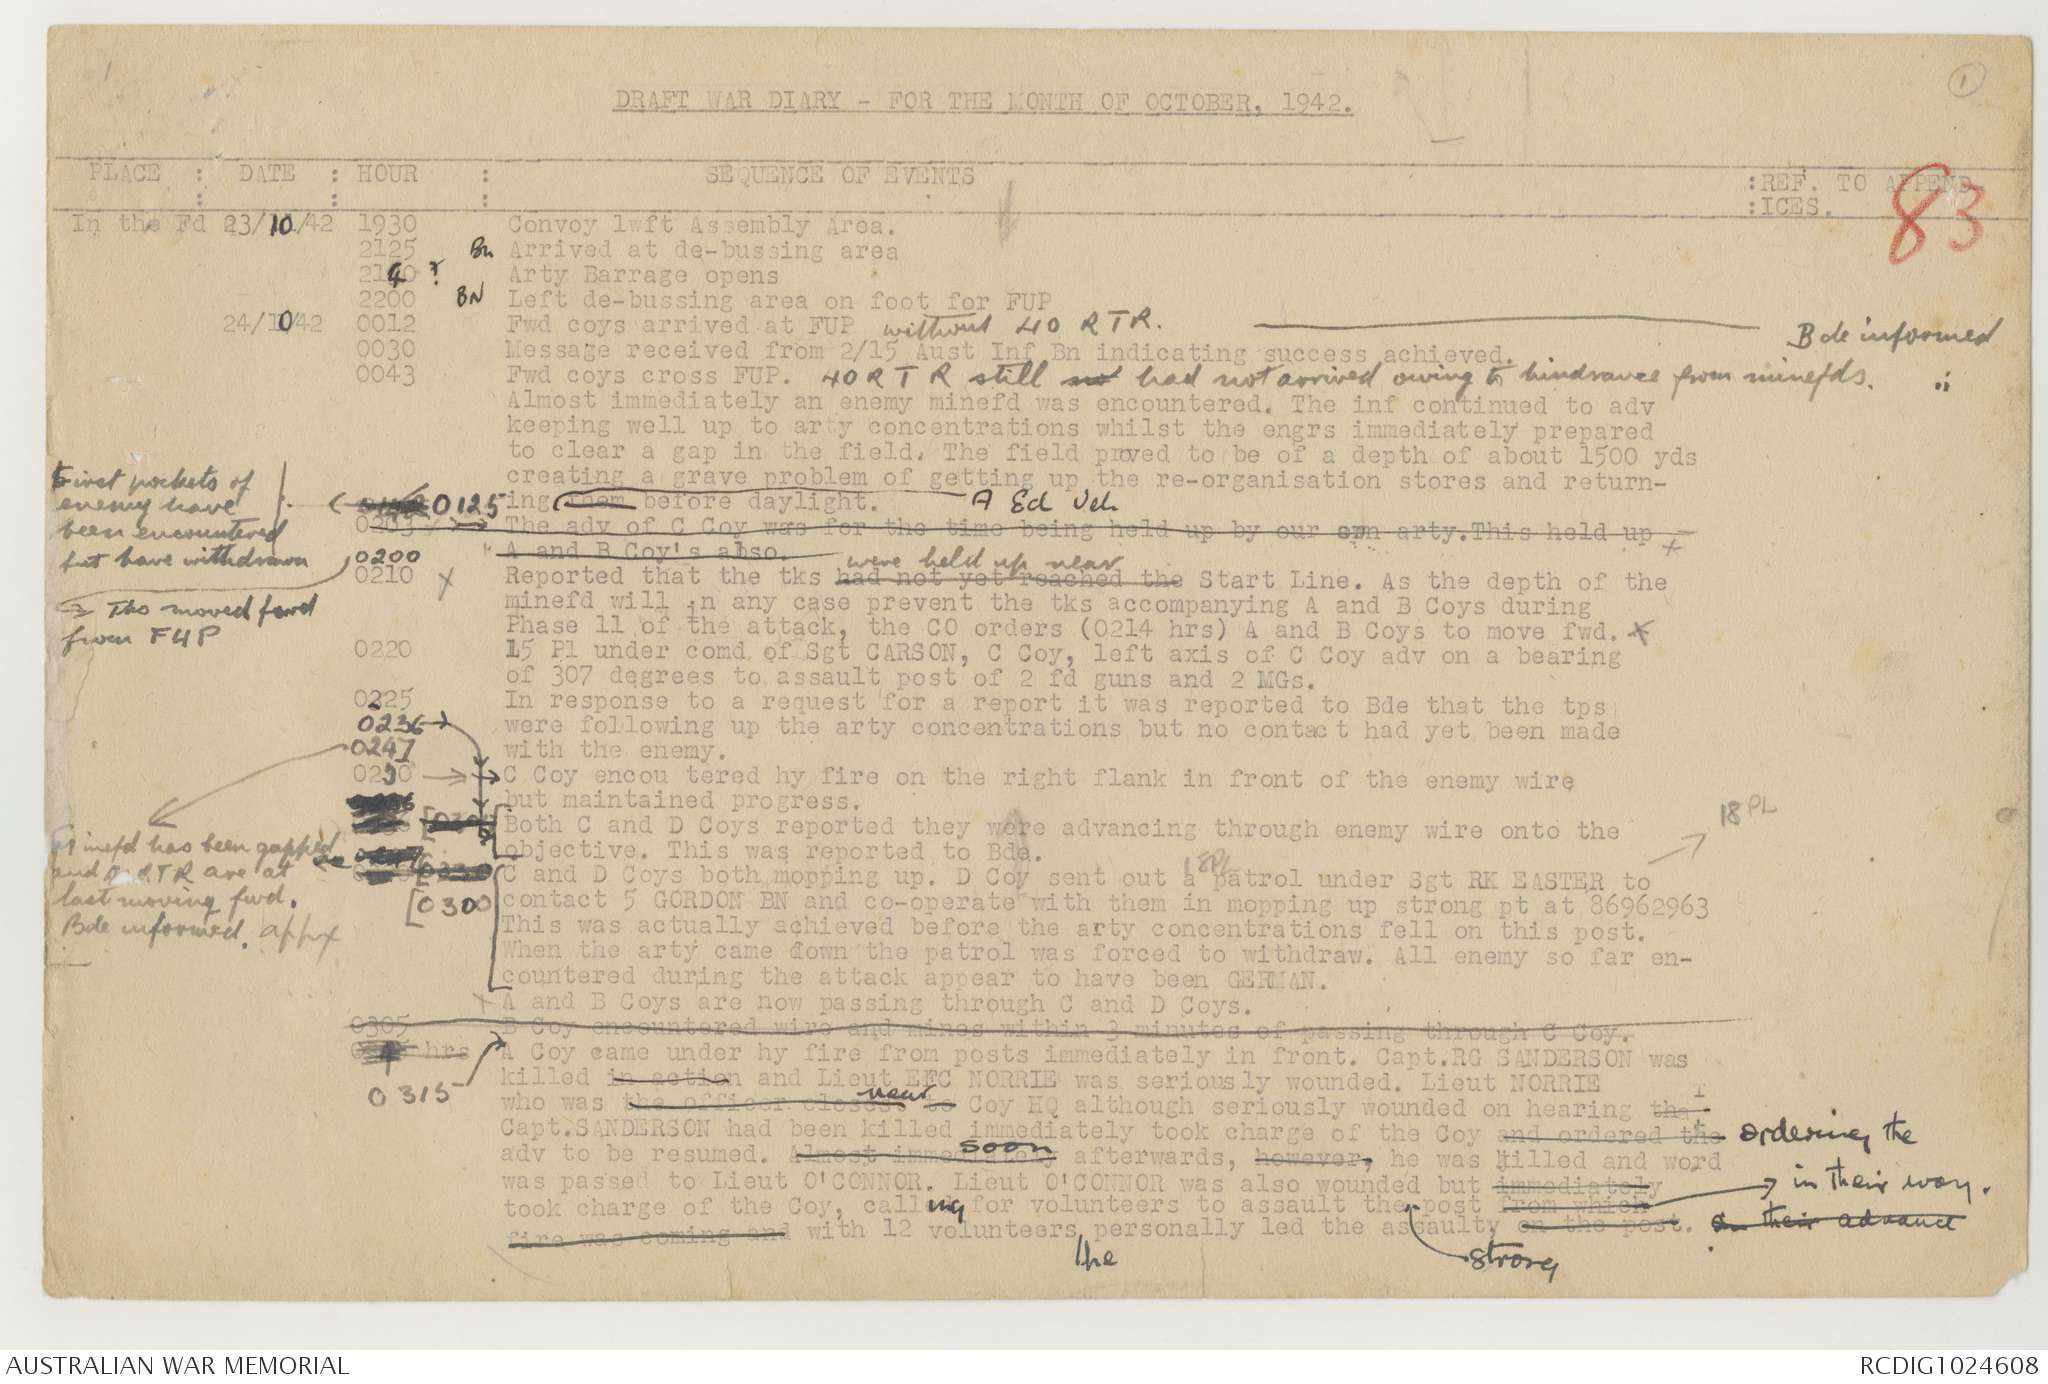 1
DRAFT WAR DIARY - FOR THE MONTH OF OCTOBER, 1942.
PLACE : DATE : HOUR : SEQUENCE OF EVENTS :REF. TO APPEND
: : : :ICES.
83
In the Fd 23/10/42 1930 Convoy lwft Assembly Area.
2125 Bn Arrived at de-bussing area
2140 ? Arty Barrage opens
2200 BN Left de-bussing area on foot for FUP
24/10/42 0012 Fwd coys arrived at FUP without 40 RTR. Bde informed
0030 Message received from 2/15 Aust Inf Bn indicating success achieved.
0043 Fwd coys cross FUP. 40 RTR still not had not arrived owing to hindrance from minefds. "
Almost immediately an enemy minefd was encountered. The inf continued to adv
keeping well up to arty concentrations whilst the engrs immediately prepared
to clear a gap in the field. The field proved to be of a depth of about 1500 yds
creating a grave problem of getting up the re-organisation stores and return-
0125 ing them before daylight. A Ed Veh
First pockets of
enemy have
been encountered
but have withdrawn
0203 The adv of C Coy was for the time being held up by our own arty. This held up
A and B Coy's also.
0200
Tks moved fwd
from FUP
were held up near
0210 Reported that the tks had not yet reached the Start Line. As the depth of the
minefd will in any case prevent the tks accompanying A and B Coys during
Phase 11 of the attack, the CO orders (0214 hrs) A and B Coys to move fwd. X
0220 15 Pl under comd of Sgt CARSON, C Coy, left axis of C Coy adv on a bearing
of 307 degrees to assault post of 2 fd guns and 2 MGs.
0225 In response to a request for a report it was reported to Bde that the tps
0236 were following up the arty concentrations but no contact had yet been made
0247 with the enemy.
0230 C Coy encou tered hy fire on the right flank in front of the enemy wire
but maintained progress.
18 PL
Both C and D Coys reported they were advancing through enemy wire onto the
objective. This was reported to Bde.
minefd has been gapped
and RTR are at
last moving fwd.
Bde informed. appx
18PL
C and D Coys both mopping up. D Coy sent out a patrol under Sgt RK EASTER to
0300 contact 5 GORDON BN and co-operate with them in mopping up strong pt at 86962963
This was actually achieved before the arty concentrations fell on this post.
When the arty came down the patrol was forced to withdraw. All enemy so far en-
countered during the attack appear to have been GERMAN.
X A and B Coys are now passing through C and D Coys.
0305 B Coy encountered wire and mines within 3 minutes of passing through C Coy.
hrs A Coy came under hy fire from posts immediately in front. Capt.RG SANDERSON was
0315 killed in action and Lieut EFC NORRIE was seriously wounded. Lieut NORRIE
near
who was the officer closest to Coy HQ although seriously wounded on hearing that
Capt.SANDERSON had been killed immediately took charge of the Coy and ordered the ordering the
soon
adv to be resumed. Almost immediately afterwards, however, he was killed and word
was passed to Lieut O'CONNOR. Lieut O'CONNOR was also wounded but immediately in their way.
took charge of the Coy, calling for volunteers to assault the post from which
fire was coming and with 12 volunteers personally led the assaulty on the post. in their advance
he strong
AUSTRALIAN WAR MEMORIAL RCDIG1024608